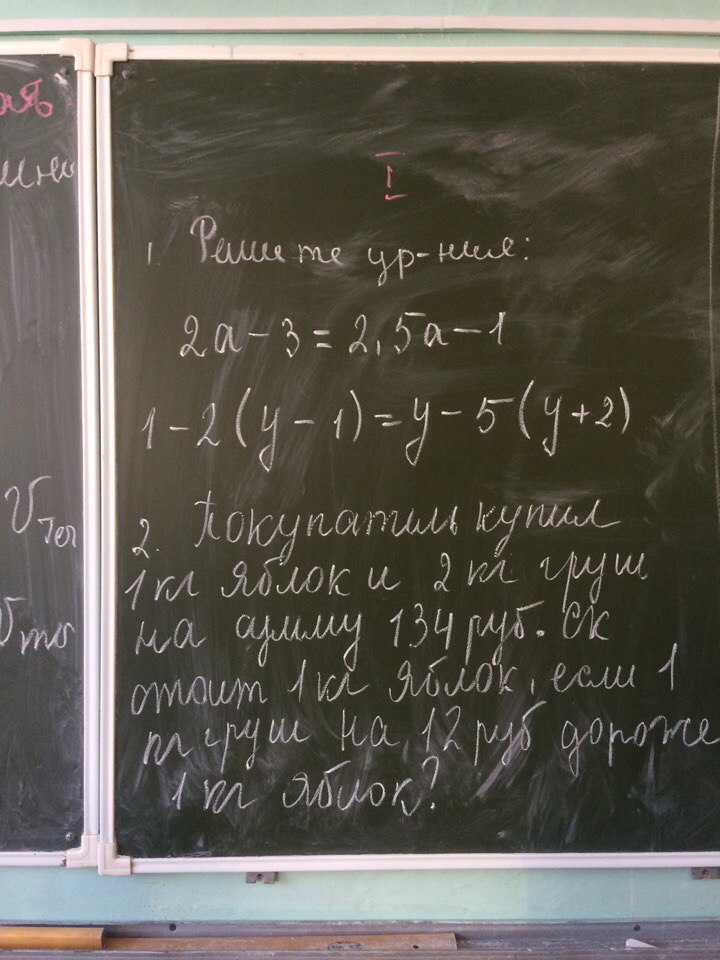 ая
ини
V теч
V то
I
1. Решите ур-ния:
2a - 3 = 2,5a - 1
1 - 2(y - 1) = y - 5(y + 2)
2. Покупатиль купил
1 кг яблок и 2 кг груш
на сумму 134 руб. Ск
стоит 1 кг яблок, если 1
кг груш на 12 руб дороже
1 кг яблок?